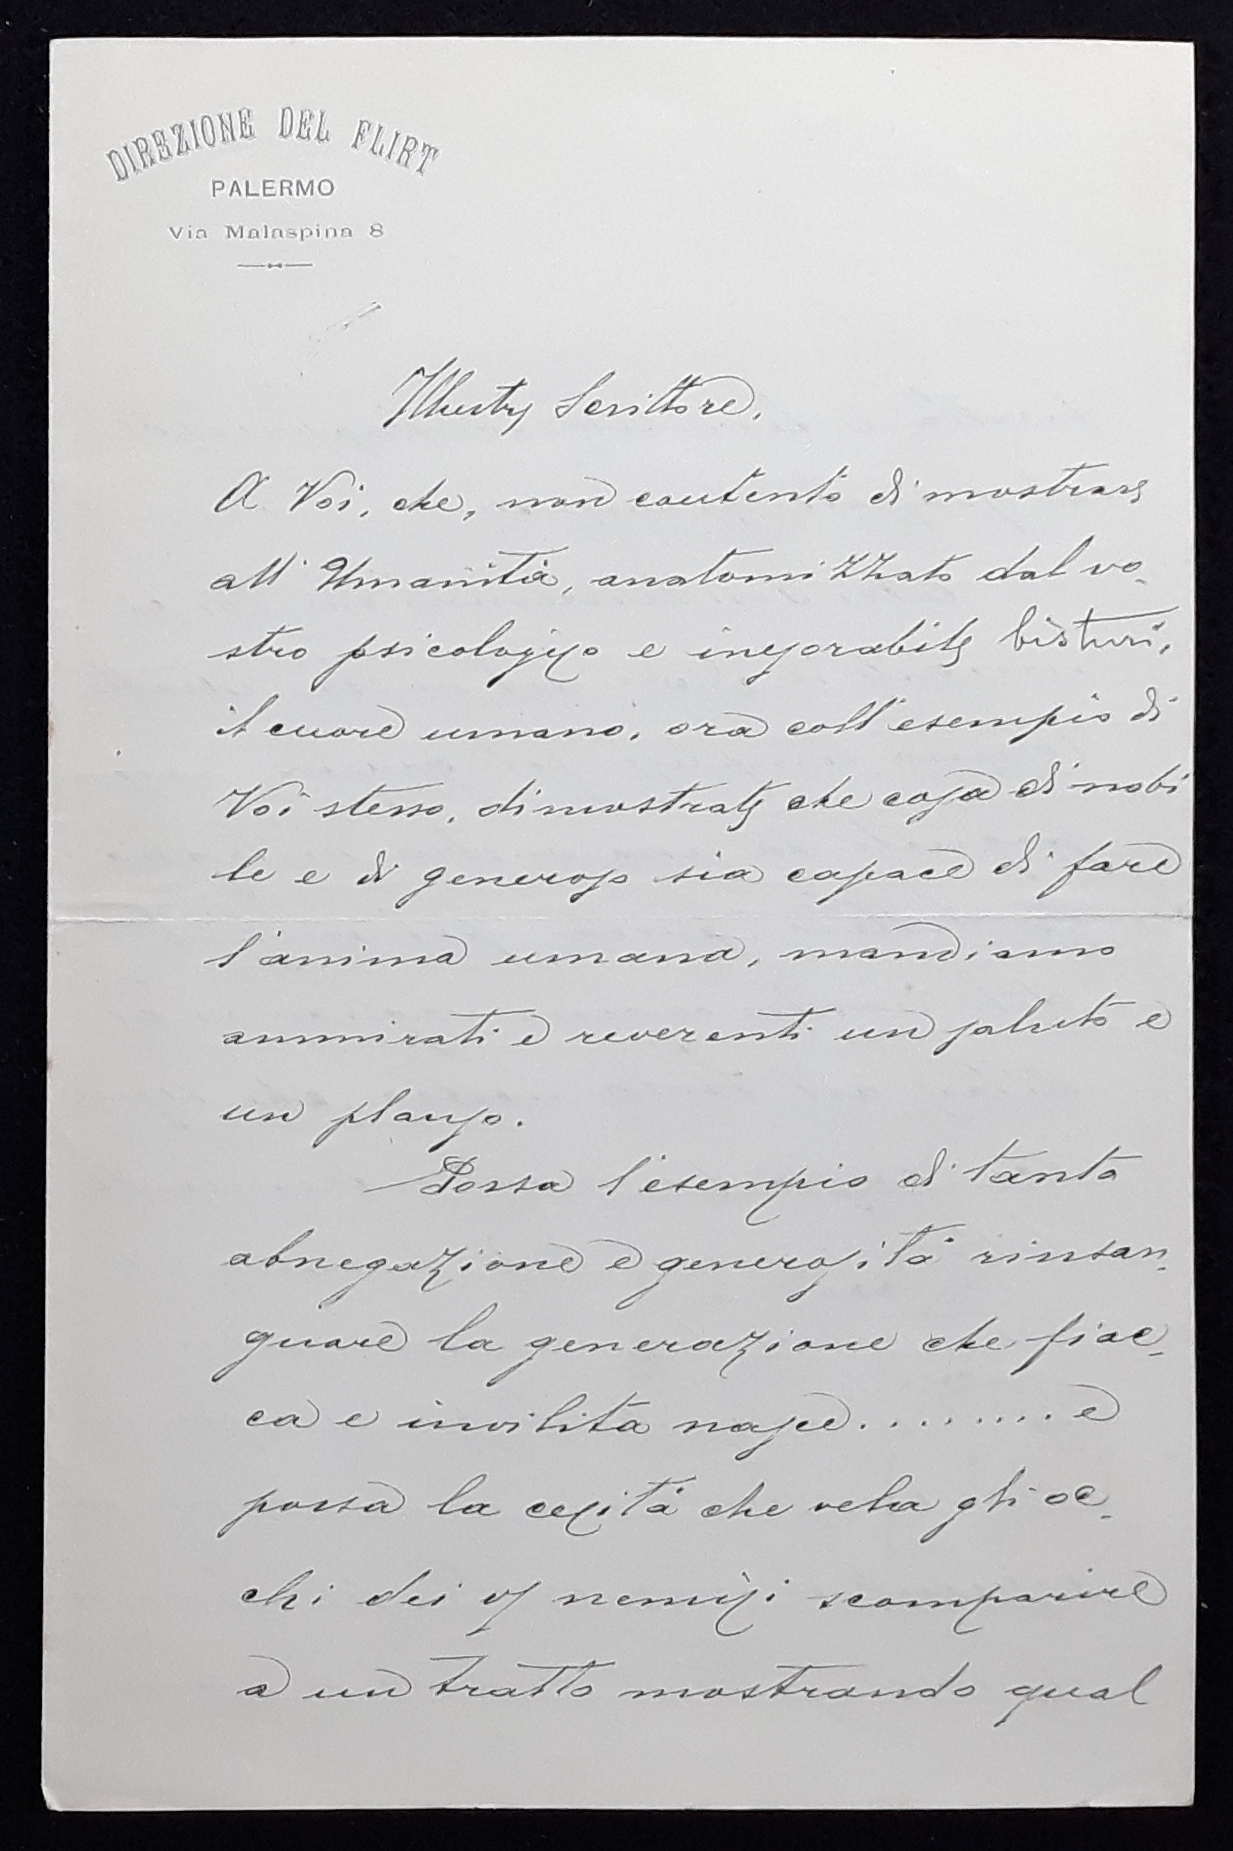 DIREZIONE DEL FLIRT
PALERMO
Via Malaspina 8
Illustre Scrittore,
A Voi, che, non contento di mostrare
all' Umanità, anatomizzato dal vo-
stro psicologico e inesorabile bisturi,
il cuore umano, ora coll'esempio di
Voi stesso, dimostrate che cosa di nobi
le e di generoso sia capace di fare
l'anima umana, mandiamo
ammirati e reverenti un saluto e
un plauso.
Possa l'esempio di tanta
abnegazione e generosità rinsan-
guare la generazione che fiac-
ca e invilita nasce......... e
possa la cecità che vela gli oc-
chi dei nemici scomparire
a un tratto mostrando qual